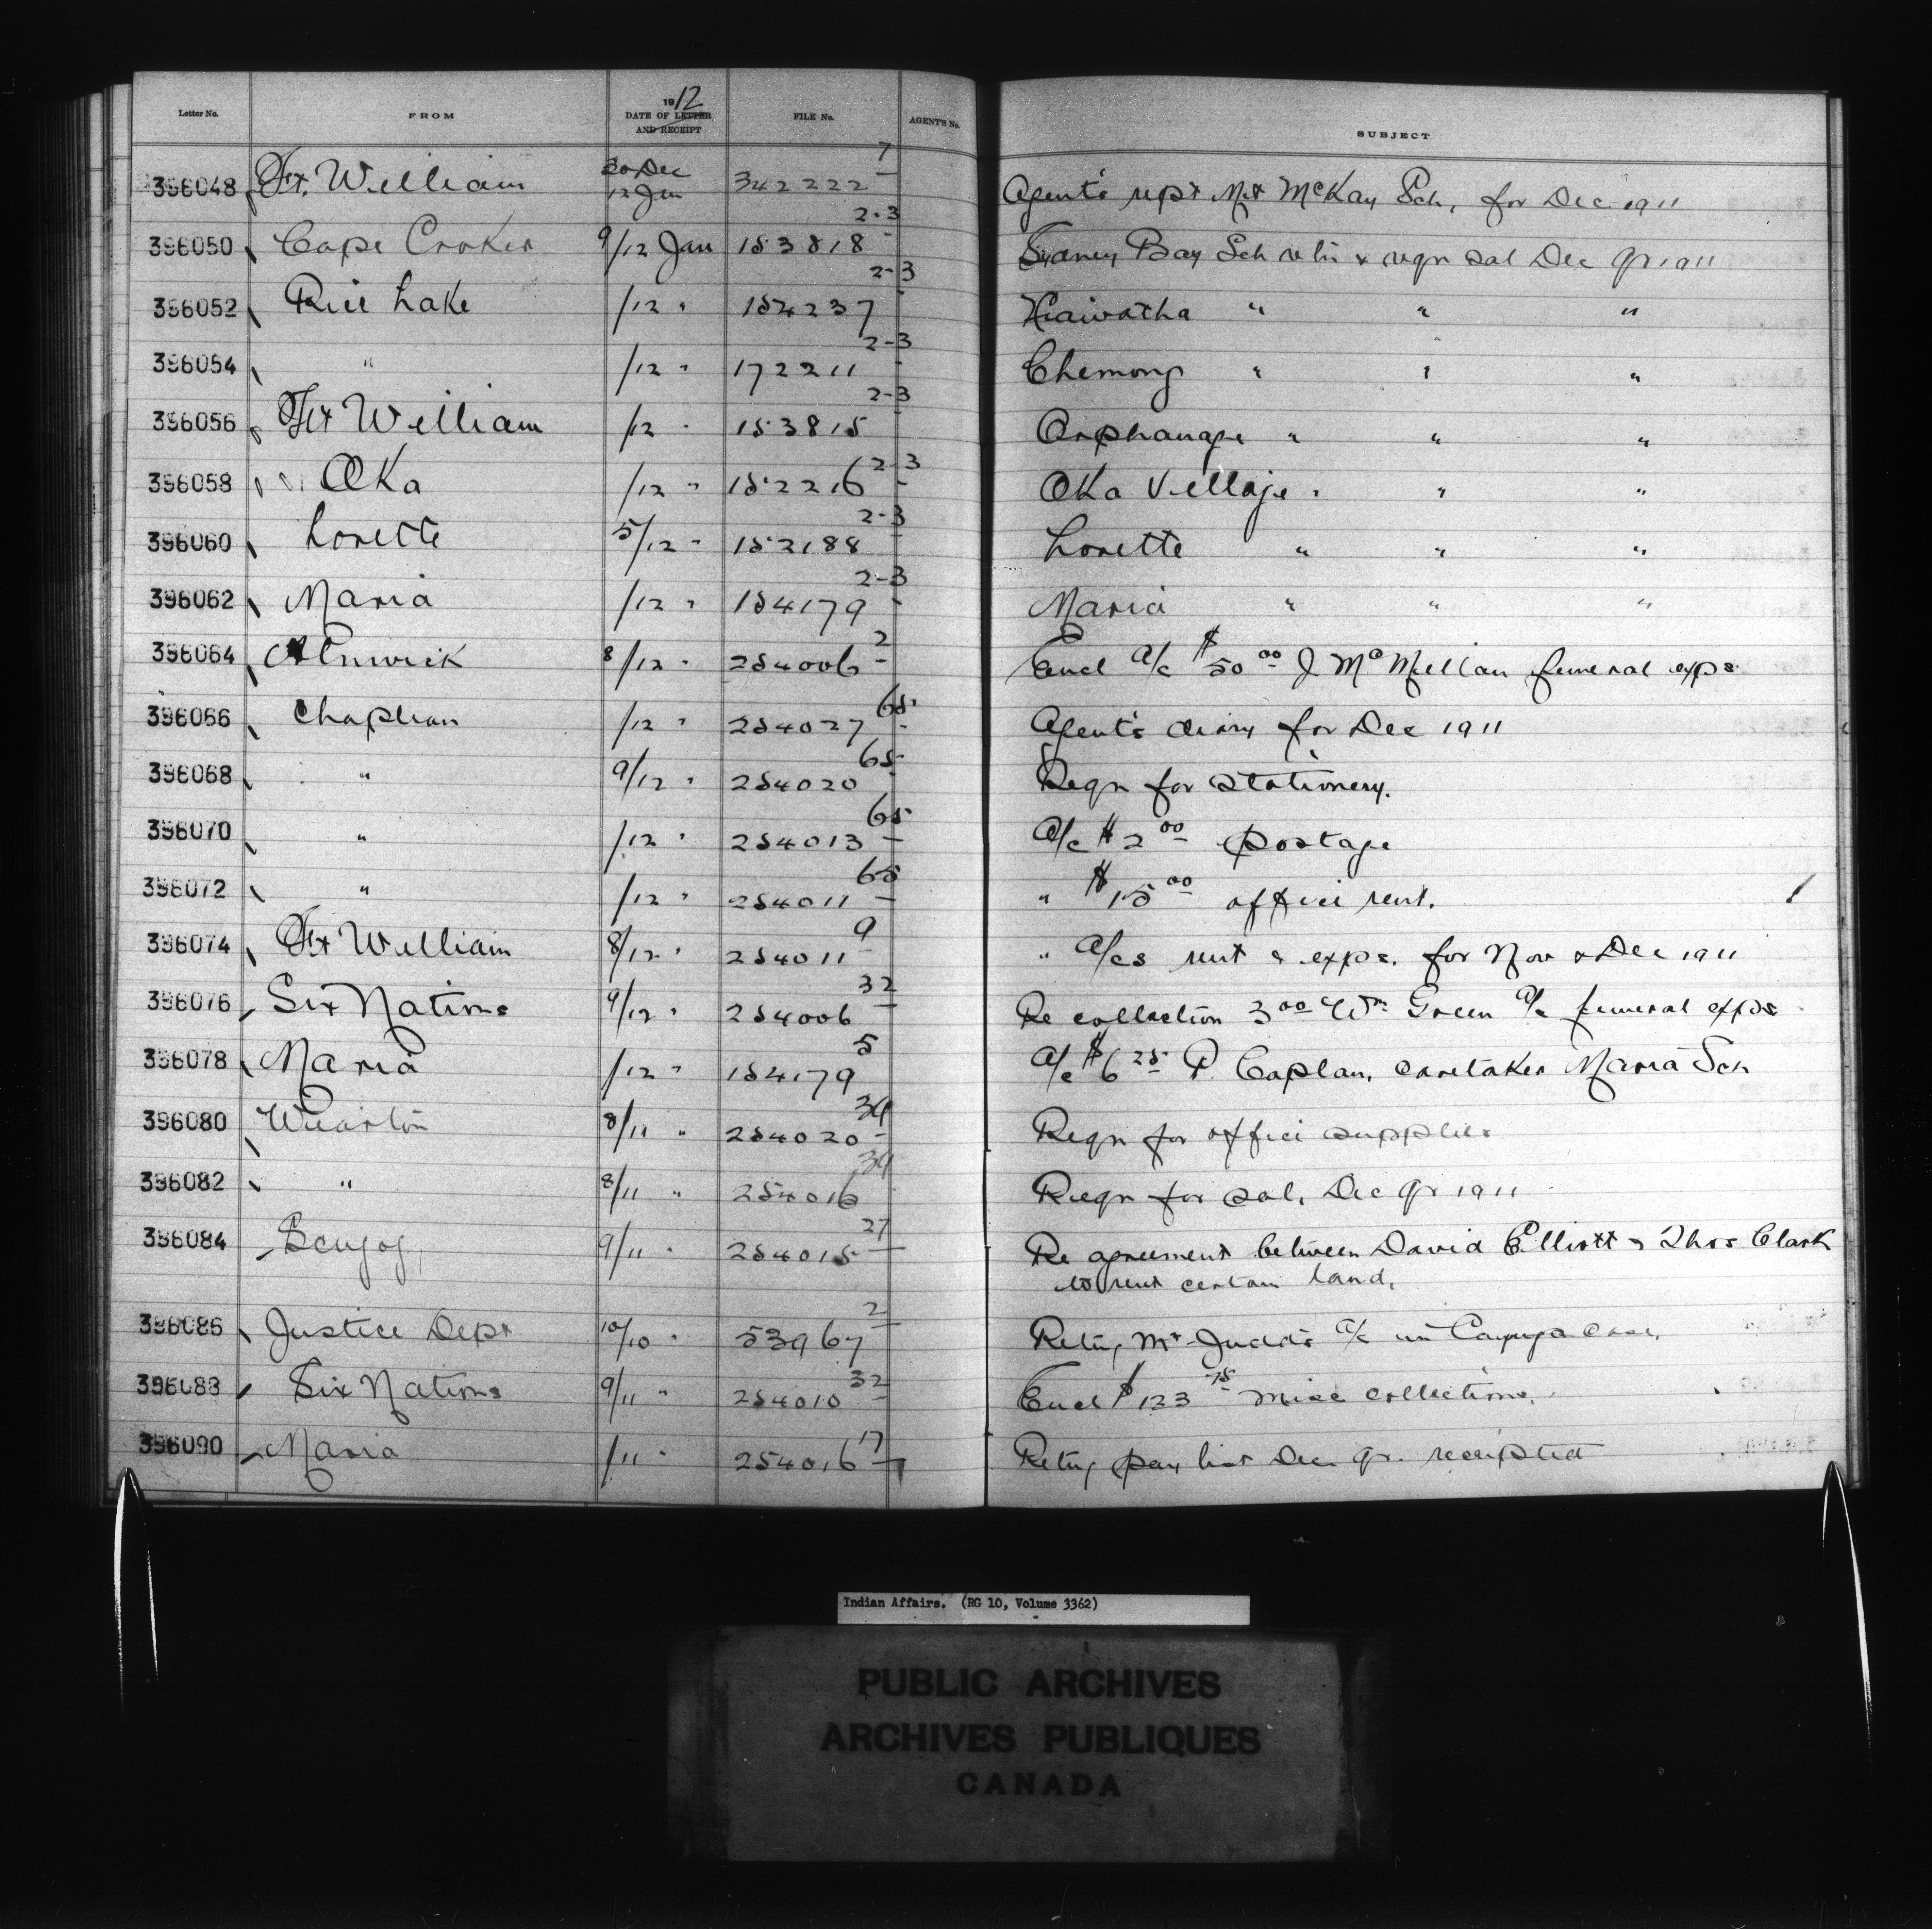 Letter No. FROM 1912 DATE OF LETTER AND RECEIPT FILE No. AGENTS No. SUBJECT
396048 Ft. William 30 Dec 12 Jan 342222 7 Agent's rept Mt McKay Sch, for Dec 1911
396050 Cape Croker 9/12 Jan 153818 2-3 Sydney Bay Sch retn & reqn sal Dec qr 1911
396052 Rice Lake /12 " 154237 2-3 Hiawatha " " "
396054 " /12 " 172211 2-3 Chemong " " "
396056 Ft William /12 " 153815 2-3 Orphanage " " "
396058 Oka /12 " 152216 2-3 Oka Village " " "
396060 Lorette 5/12 " 152188 2-3 Lorette " " "
396062 Maria /12 " 154179 2-3 Maria " " "
396064 Alnwick 8/12 " 254006 2 Encl a/c $50 00 J McMillan funeral exps
396066 Chapleau /12 " 254027 65 Agent's diary for Dec 1911
396068 " 9/12 " 254020 65 Reqn for stationery.
396070 " /12 " 254013 65 a/c $2 00 postage
396072 " /12 " 254011 65 " $15 00 office rent.
396074 Ft William 8/12 " 254011 9 " a/cs rent & exps. for Nov & Dec 1911
396076 Six Nations 9/12 " 254006 32 Re collection 3 00 Wm Green a/c funeral exps
396078 Maria /12 " 154179 5 a/c $6 25 P. Caplan, caretaker Maria Sch
396080 Wiarton 8/11 " 254020 34 Reqn for office supplies
396082 " 8/11 " 254016 34 Reqn for sal, Dec qr 1911
396084 Scugog, 9/11 " 254015 27 Re agreement between David Elliott & Thos Clark
to rent certain land,
396086 Justice Dept 10/10 " 53967 2 Retng Mr Judd's a/c in Cayuga case,
396088 Six Nations 9/11 " 254010 32 Encl $123 75 misc collections.
396090 Maria /11 " 254016 17 Retng pay list Dec qr. receipted
Indian Affairs. (RG 10, Volume 3362)
PUBLIC ARCHIVES
ARCHIVES PUBLIQUES
CANADA